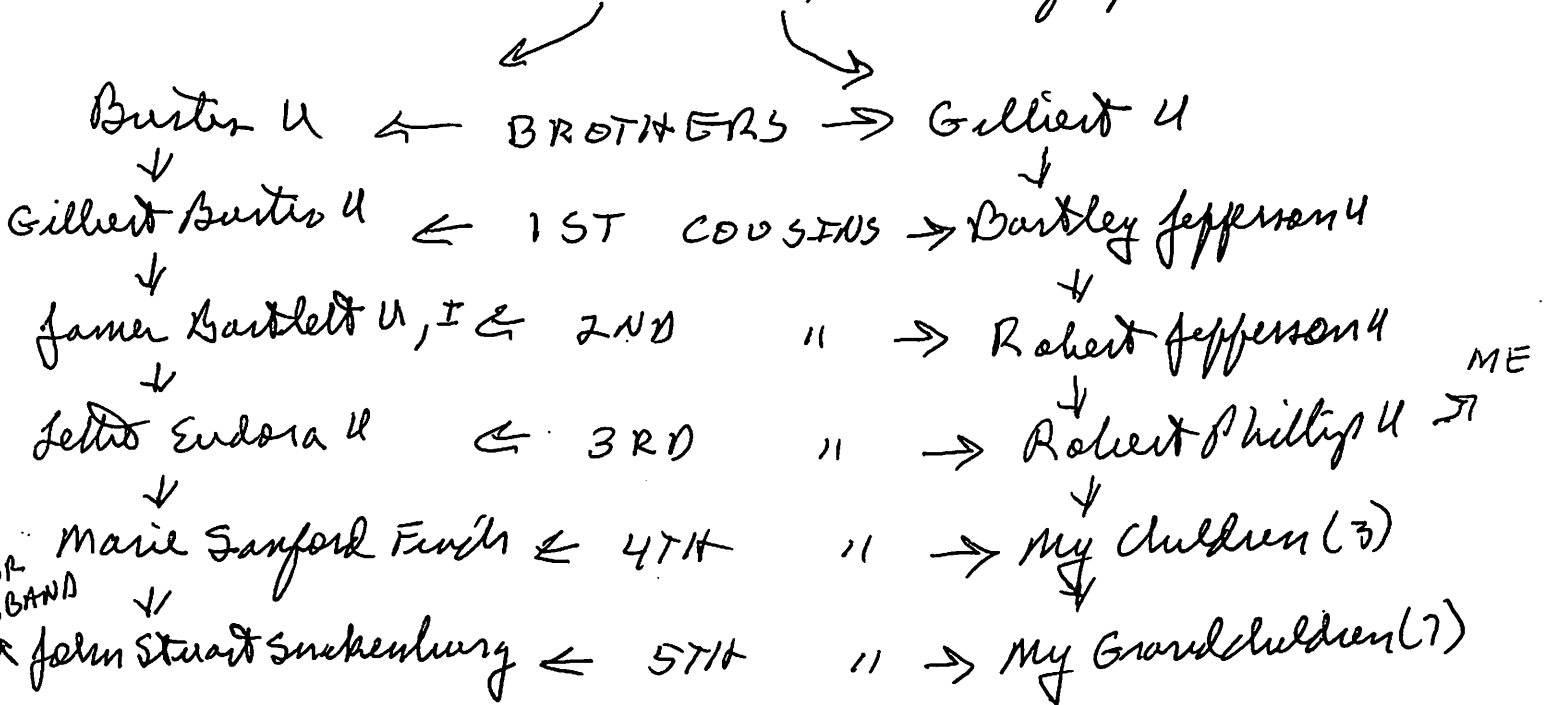 Burton U ← BROTHERS → Gilliert U
Gilbert Burton U ← 1ST COUSINS → Bartley Jefferson U
James Bartlett U, I ← 2ND " → Robert Jefferson U
ME
Eudora U ← 3RD " → Robert Phillip U
Marie Sanford Finch ← 4TH " → My Children (3)
BAND
John Stuart ← 5TH " → My Grandchildren (7)